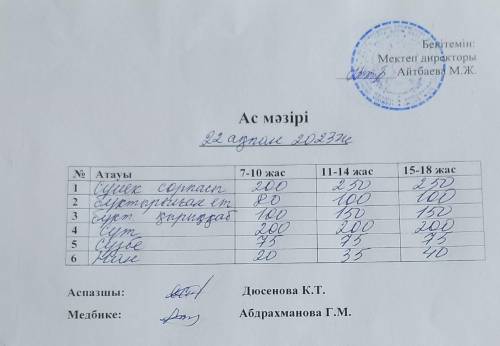 Бекітемін:
Мектеп директоры
Айтбаева М.Ж.
Ас мәзірі
22 ақпан 2023ж
№ Атауы 7-10 жас 11-14 жас 15-18 жас
1 Сүйек сорпасы 200 250 250
2 ет 80 100 100
3 100 150 150
4 Сүт 200 200 200
5 Сүзбе 75 75 75
6 Нан 20 35 40
Аспазшы: Дюсенова К.Т.
Медбике: Абдрахманова Г.М.